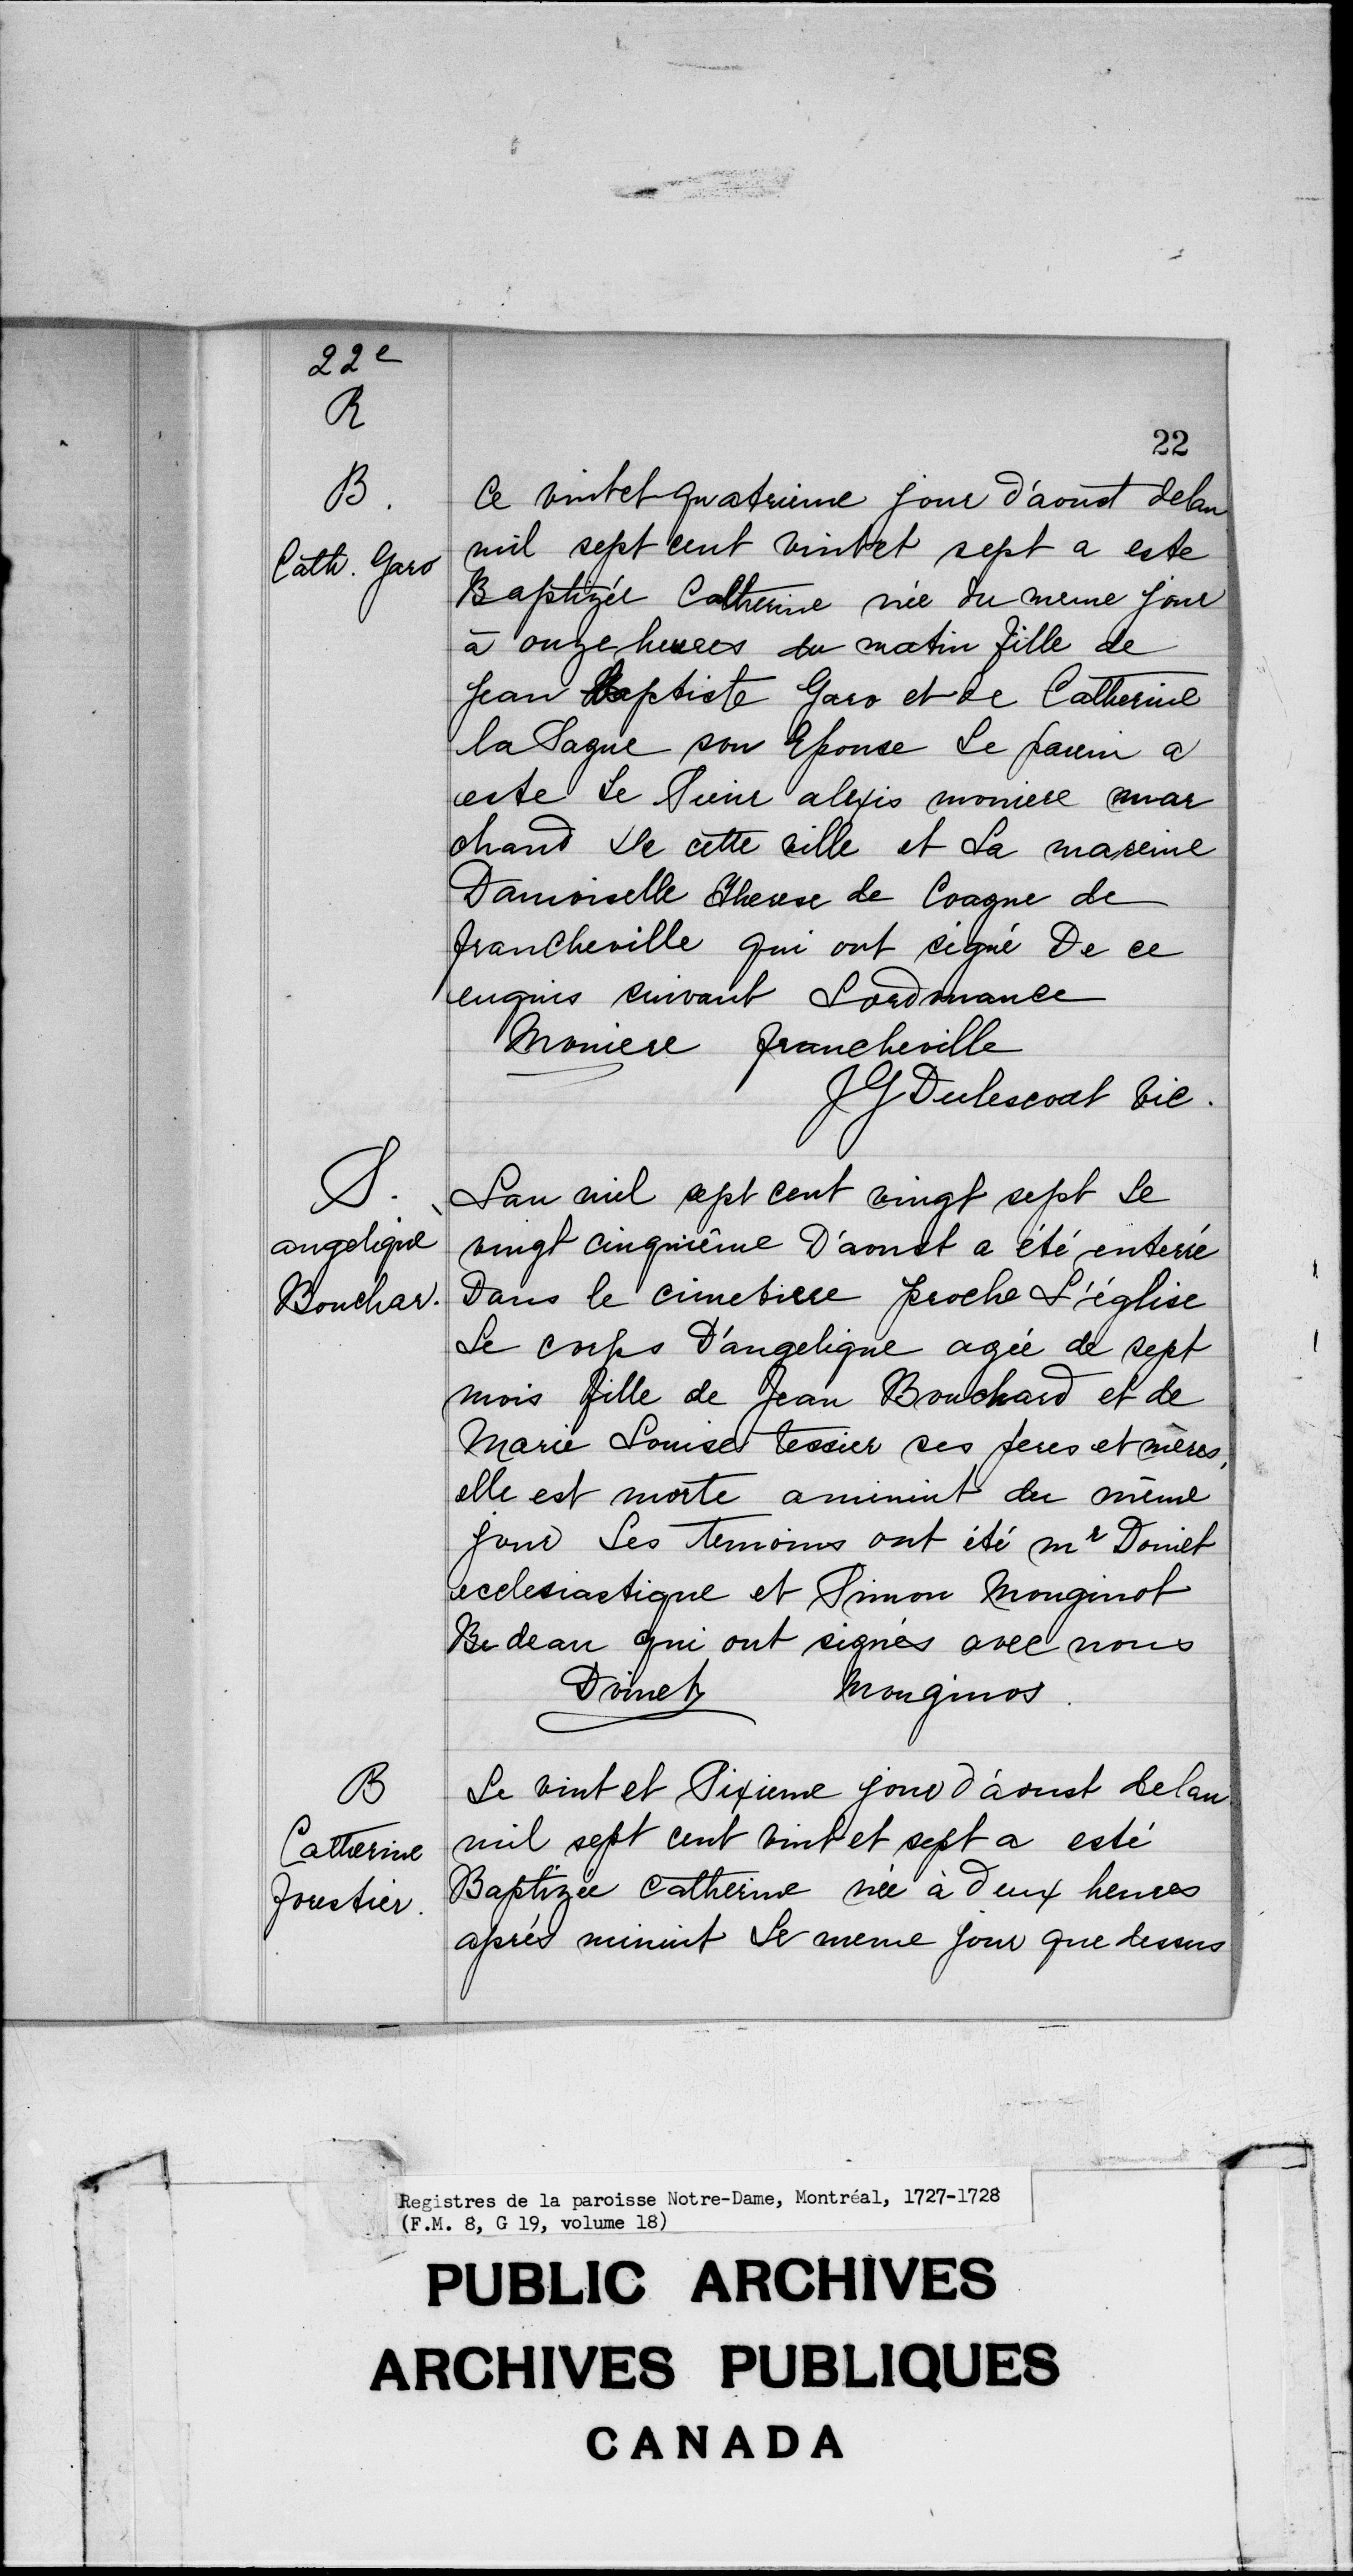 22e
R
22
B.
Cath. Garo
Ce vintet quatrieme jour d'aoust delan
mil sept cent vintet sept a este
Baptizée Catherine née du meme jour
à onze heures du matin fille de
Jean Baptiste Garo et de Catherine
la Sague son Epouse Le parein a
este Le Sieur alexis moniere mar
chand De cette ville et La mareine
Damoiselle therese de Coagne de
francheville qui ont signé De ce
enquis suivant Lordonnance
Moniere Francheville
JG Dulescoat Vic.
S.
angelique
Bouchar.
Lan mil sept cent vingt sept Le
vingt cinquième D'aoust a été enterré
Dans le cimetiere proche L'église
Le corps D'angelique agée de sept
mois fille de Jean Bouchard et de
Marie Louise Tessier ses peres et mères,
elle est morte aminuit du même
jour Les Temoins ont été mr Doinet
ecclesiastique et Simon Monginot
Bedeau qui ont signés avec nous
Doinet Monginos.
B
Catherine
Forestier.
Le vint et Sixieme jour d'aoust delan
mil sept cent vint et sept a esté
Baptizée catherine née à deux heures
aprés minuit Le meme jour que dessus
Registres de la paroisse Notre-Dame, Montréal, 1727-1728
(F.M. 8, G 19, volume 18)
PUBLIC ARCHIVES
ARCHIVES PUBLIQUES
CANADA